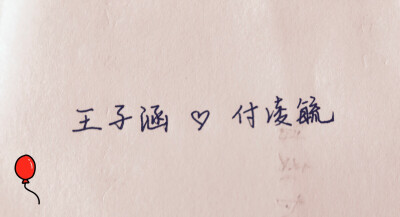 王子涵 ♡ 付凌毓